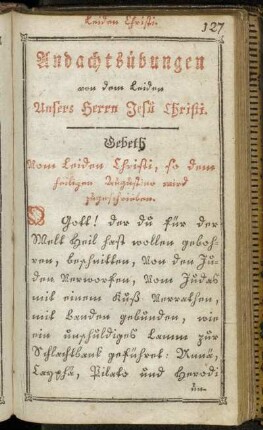 Leiden Christi.
127
Andachtsübungen
von dem Leiden
Unsers Herrn Jesu Christi.
Gebeth
Vom Leiden Christi, so dem
heiligen Augustino wird
zugeschrieben.
O Gott! der du für der
Welt Heil hast wollen geboh-
ren, beschnitten, Von den Ju-
den Verworfen, Vom Judas
mit einem Kuß Verrathen,
mit banden gebunden, wie
ein unschuldiges Lamm zur
Schlachtbank geführet: Anna,
Caypha, Pilato und Herodi